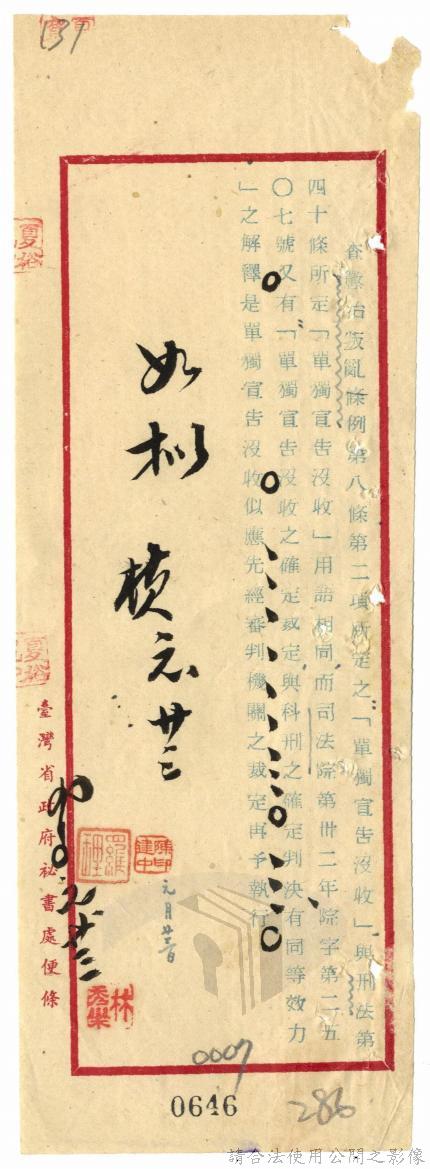 137
查懲治叛亂條例第八條第二項所定之「單獨宣告沒收」與刑法第
四十條所定「單獨宣告沒收」用語相同而司法院第卅二年院字第二五
〇七號又有「單獨宣告沒收之確定裁定與科刑之確定判決有同等效力
」之解釋是單獨宣告沒收似應先經審判機關之裁定再予執行
陳印建中
元月廿三日
如擬
楨 元廿三
元廿三
臺灣省政府祕書處便條
夏裕
夏裕
0007
0646
286
請合法使用公開之影像